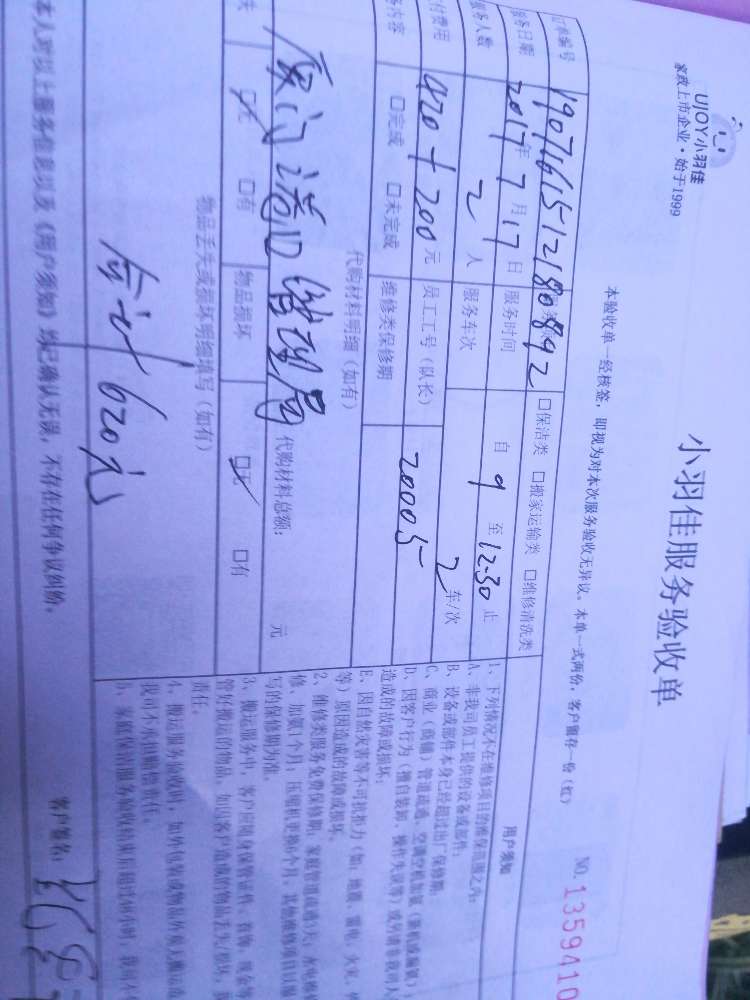 UJOY小羽佳
家政上市企业·始于1999
小羽佳服务验收单
本验收单一经核签，即视为对本次服务验收无异议。本单一式两份，客户留存一份（红）
NO.1359410
订单编号 1907161512180842 □保洁类 □搬家运输类 □维修清洗类
服务日期 2017年7月17日 服务时间 自9至12:30止
务人数 2人 服务车次 2车/次
付费用 420+200元 员工工号（队长） 20005
务内容 □完成 □未完成 维修类保修期
代购材料明细（如有）
厦门港口管理局 代购材料总额： 元
失 □无 □有 物品损坏 □无 □有
物品丢失或损坏明细填写（如有）
合计 620元
用户须知
1、下列情况不在维修项目的维保范围之内：
A、非我司员工提供的设备或部件；
B、设备或部件本身已经超过出厂保修期；
C、商业（商铺）管道疏通、空调空机加氟
D、因客户行为（擅自装卸、操作失误等）或
造成的故障或损坏；
E、因自然灾害等不可抗拒力（如：地震、雷电、火灾、
等）原因造成的故障或损坏。
2、维修类服务免费保修期：家庭管道疏通
修、加氟1个月；压缩机更换6个月；其他维修项目以
写的保修期为准。
3、搬运服务中，客户应随身保管证件、首饰、现金等
管好搬运的物品，如因客户造成的物品丢失/损坏，
责任。
4、搬运服务验收时，如外包装或物品外观无
我司不承担赔偿责任。
5、家庭保洁服务验收结束后超过48小时，我司不
本人对以上服务信息以及《用户须知》均已确认无误，不存在任何争议纠纷。
客户签名：